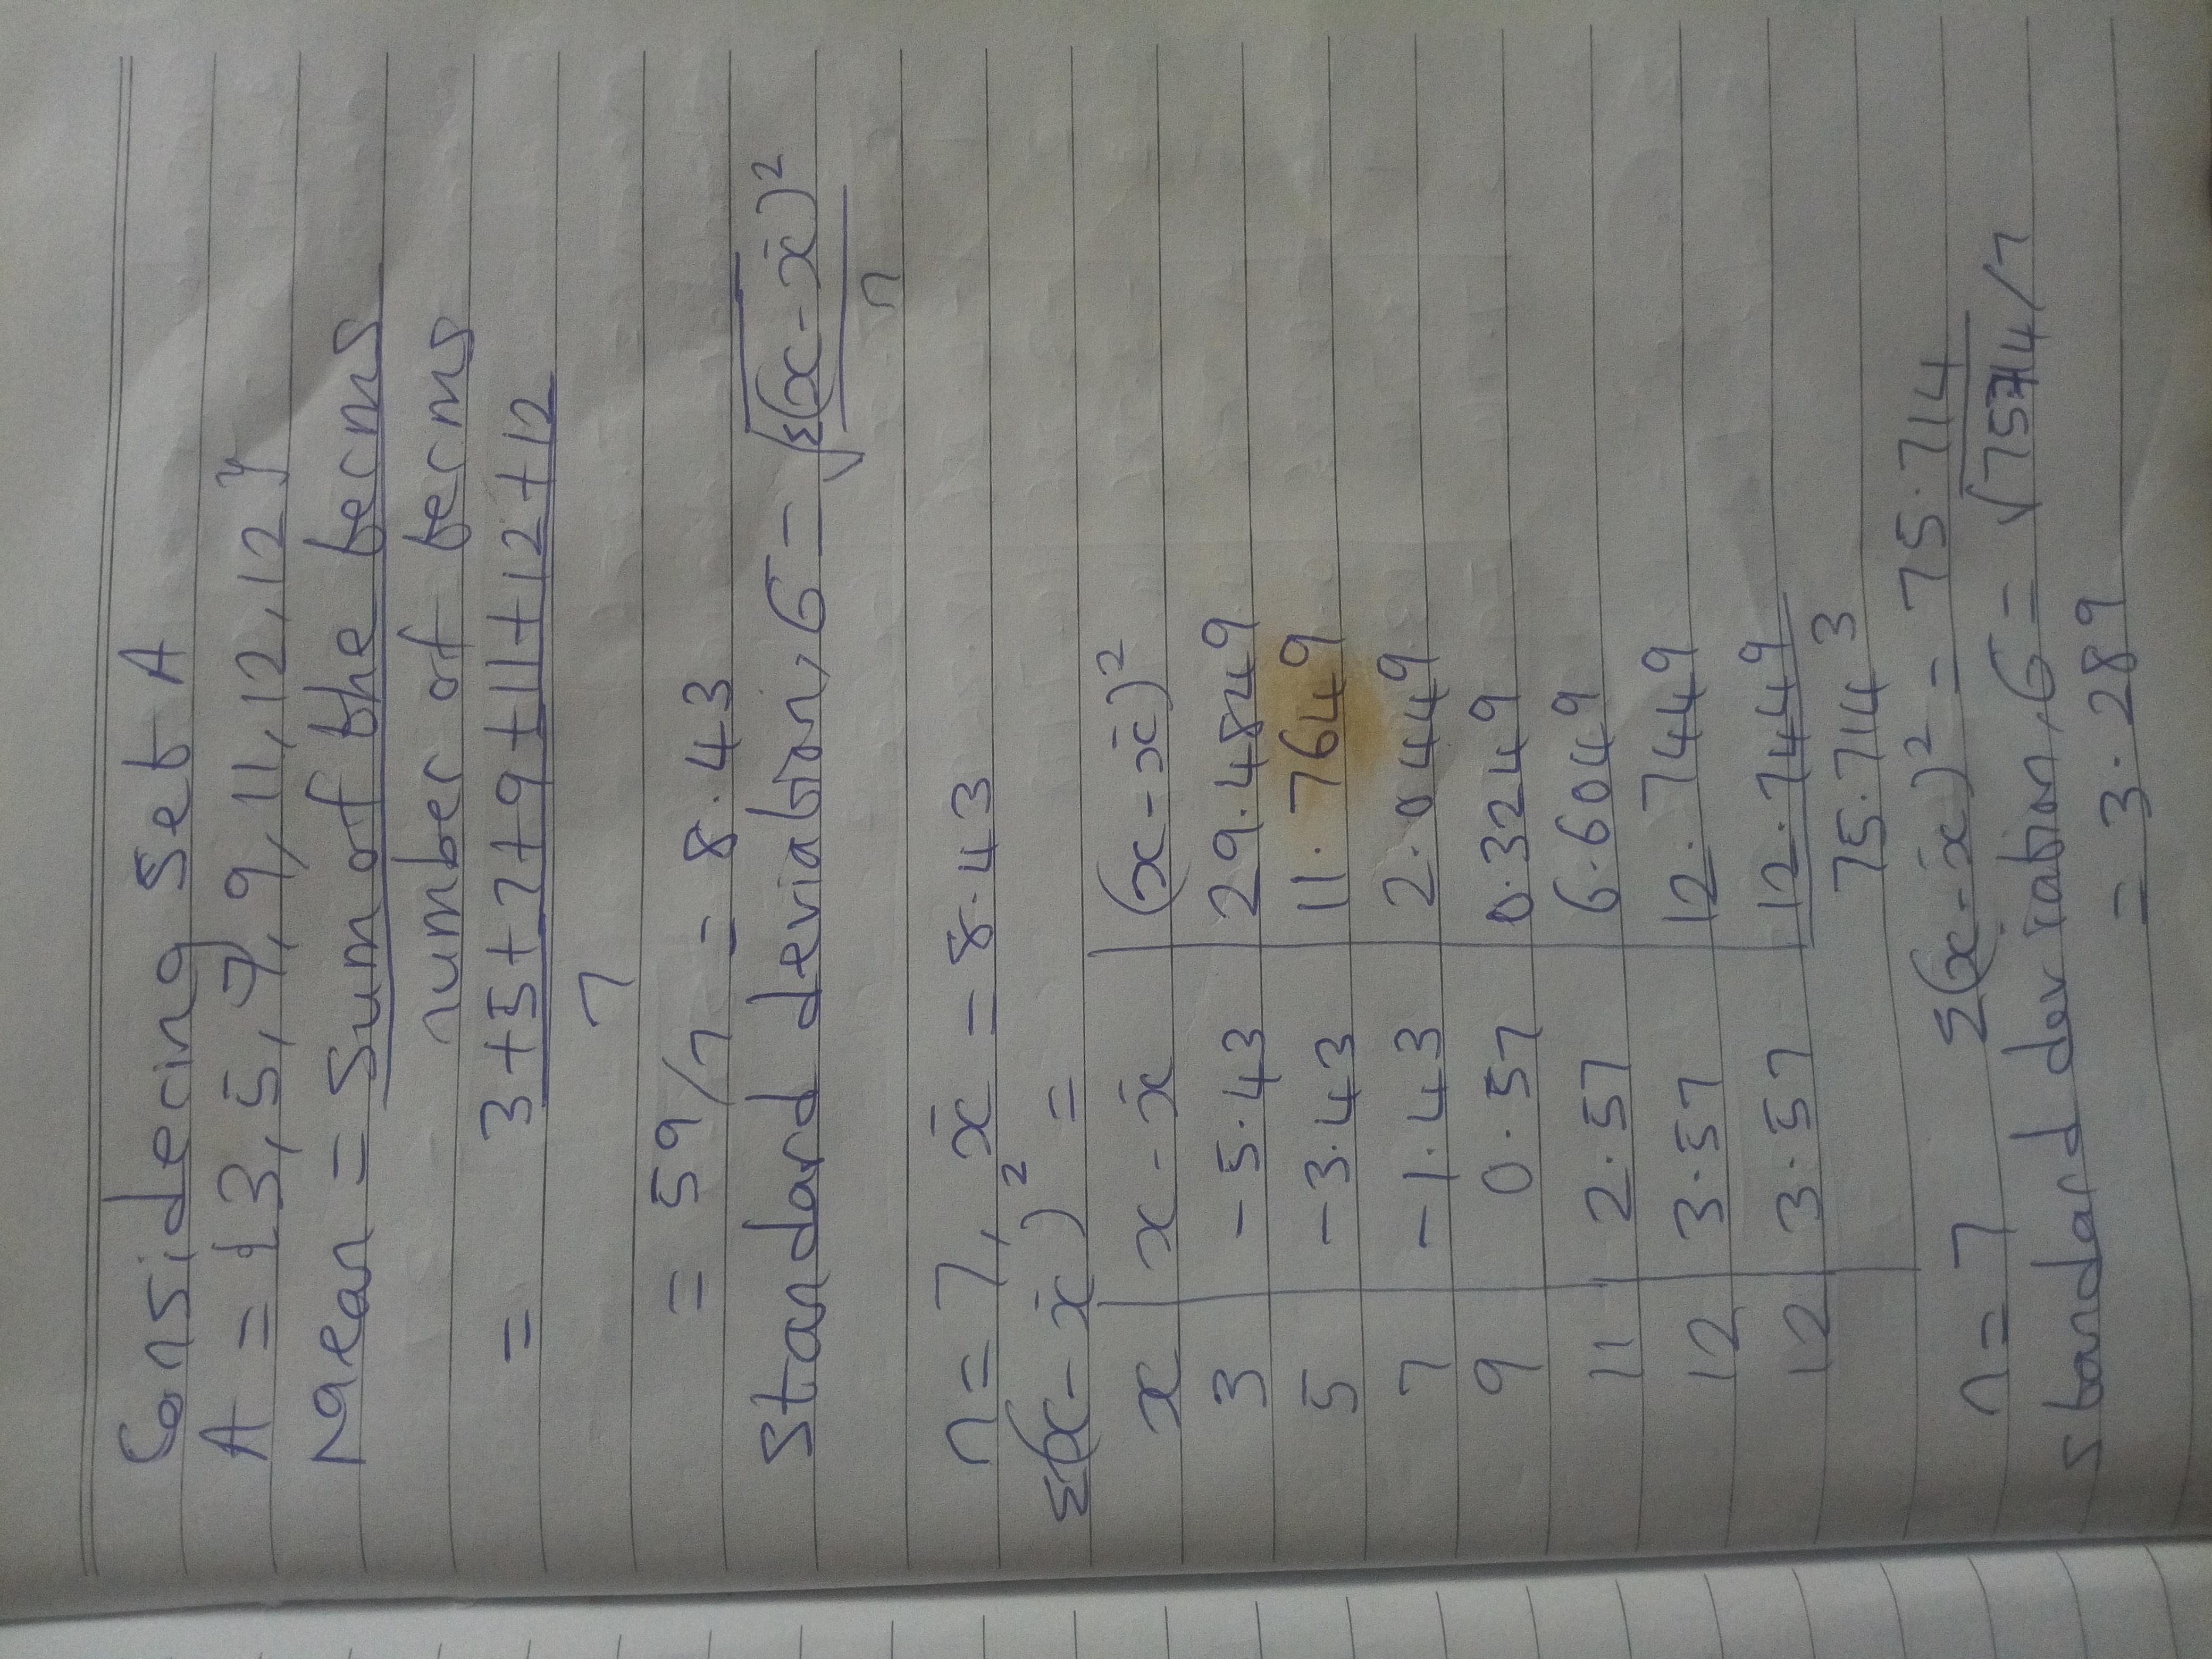 Considering Set A
A = {3, 5, 7, 9, 11, 12, 12}
Mean = Sum of the terms
number of terms
= 3+5+7+9+11+12+12
7
= 59/7 = 8.43
Standard deviation, σ = √Σ(x-x̄)²
n
n = 7, x̄ = 8.43
Σ(x-x̄)² =
x x-x̄ (x-x̄)²
3 -5.43 29.4849
5 -3.43 11.7649
7 -1.43 2.0449
9 0.57 0.3249
11 2.57 6.6049
12 3.57 12.7449
12 3.57 12.7449
75.7143
n = 7 Σ(x-x̄)² = 75.714
Standard deviation, σ = √75.714/7
= 3.289